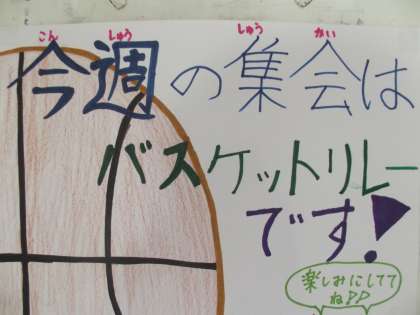 こん しゅう しゅう かい
今週の集会は
バスケットリレー
です!
楽しみにしてて
ねDD